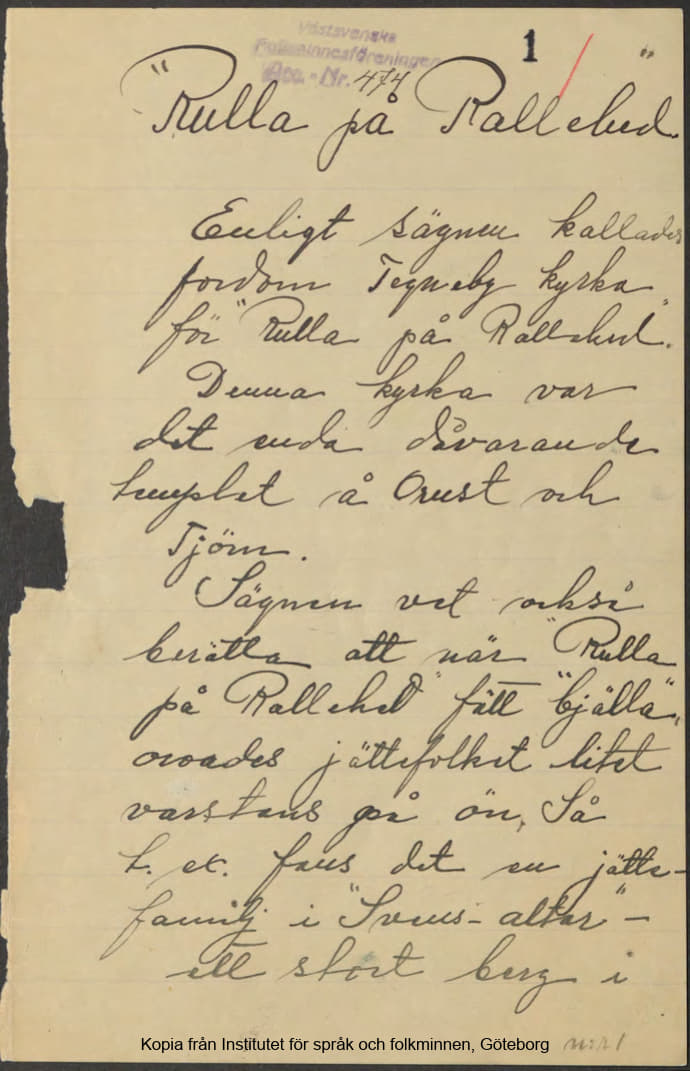 Västsvenska
Folkminnesföreningen
Acc.-Nr. 474
1
"Rulla på Rallehed"
Enligt sägnen kallades
fordom Tegneby kyrka
för "Rulla på Rallehed".
Denna kyrka var
det enda dåvarande
templet å Orust och
Tjörn.
Sägnen vet också
berätta att när "Rulla
på Rallehed" fått "bjälla",
oroades jättefolket litet
varstans på ön. Så
t. ex. fans det en jätte-
familj i "Svens-altar" -
ett stort berg i
Kopia från Institutet för språk och folkminnen, Göteborg